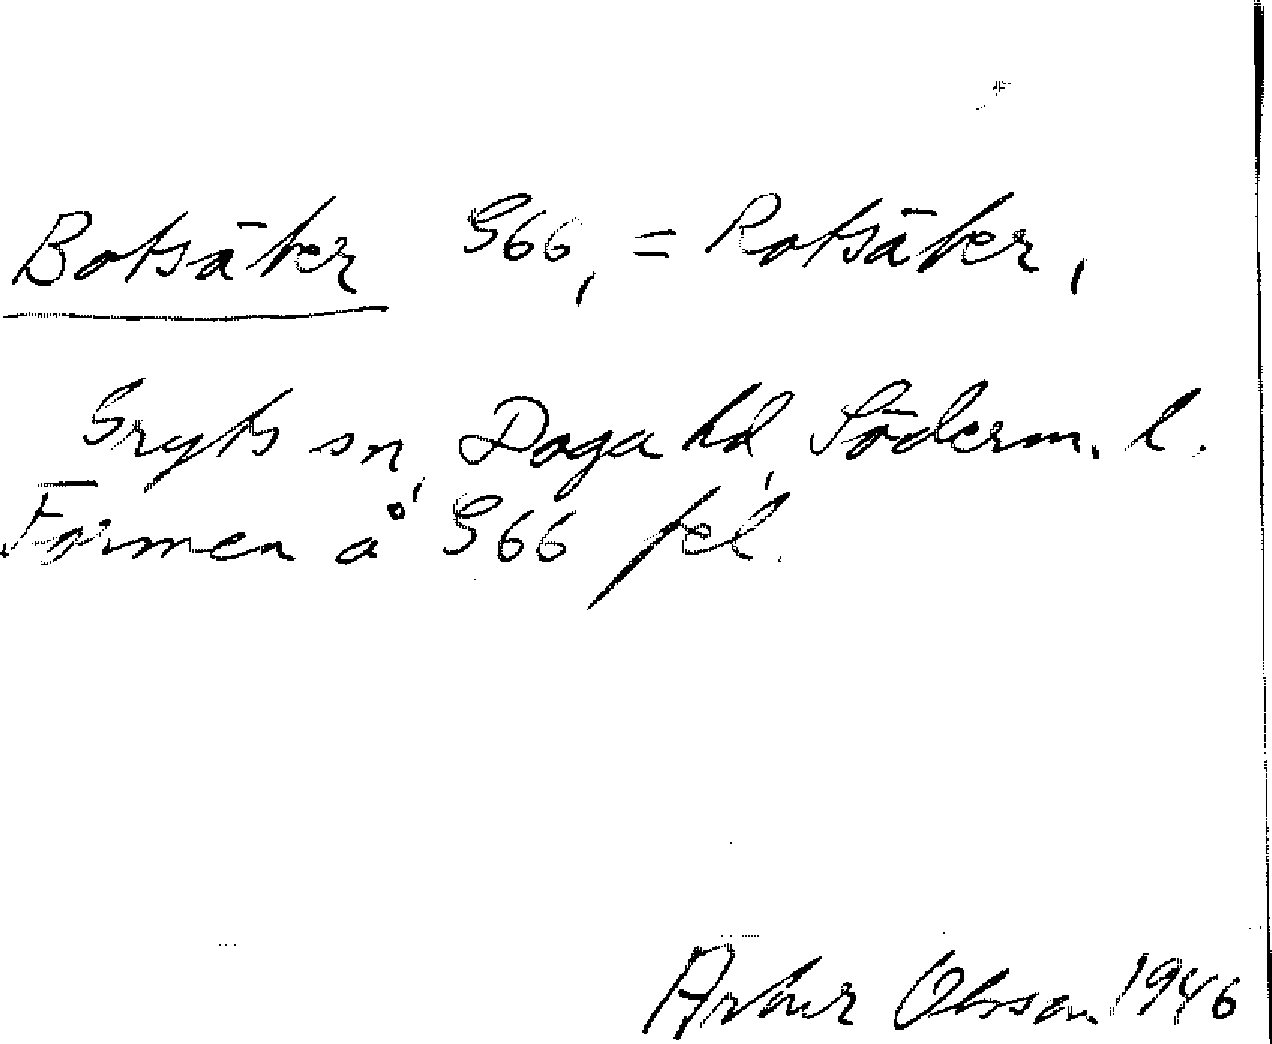 Botsäker G66, = Rotsäker,
Gryts sn, Daga hd, Söderm. l.
Formen å G66 fel.
Artur Olsson 1946